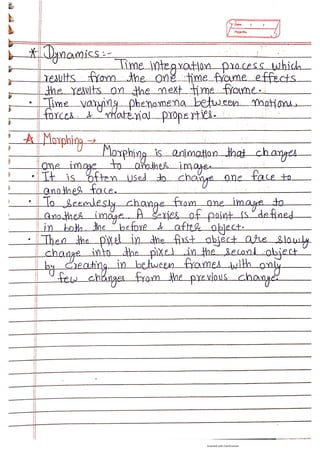 * Dynamics:-
Time integration process which
results from the one time frame effects
the results on the next time frame.
• Time varying phenomena between motions,
forces & material properties.
* Morphing →
Morphing is animation that changes
one image to another image.
• It is often used to change one face to
another face.
• To seemlesly change from one image to
another image. A series of point is defined
in both the before & after object.
• Then the pixel in the first object are slowly
change into the pixel in the second object
by creating in between frames with only
few changes from the previous change.